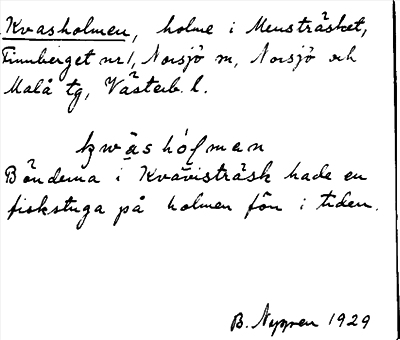 Kvasholmen, holme i Mensträsket,
Finnberget nr 1, Norsjö sn, Norsjö och
Malå tg, Västerb. l.
kwäshólman
Bönderna i Kvavisträsk hade en
fiskstuga på holmen förr i tiden.
B. Nygren 1929